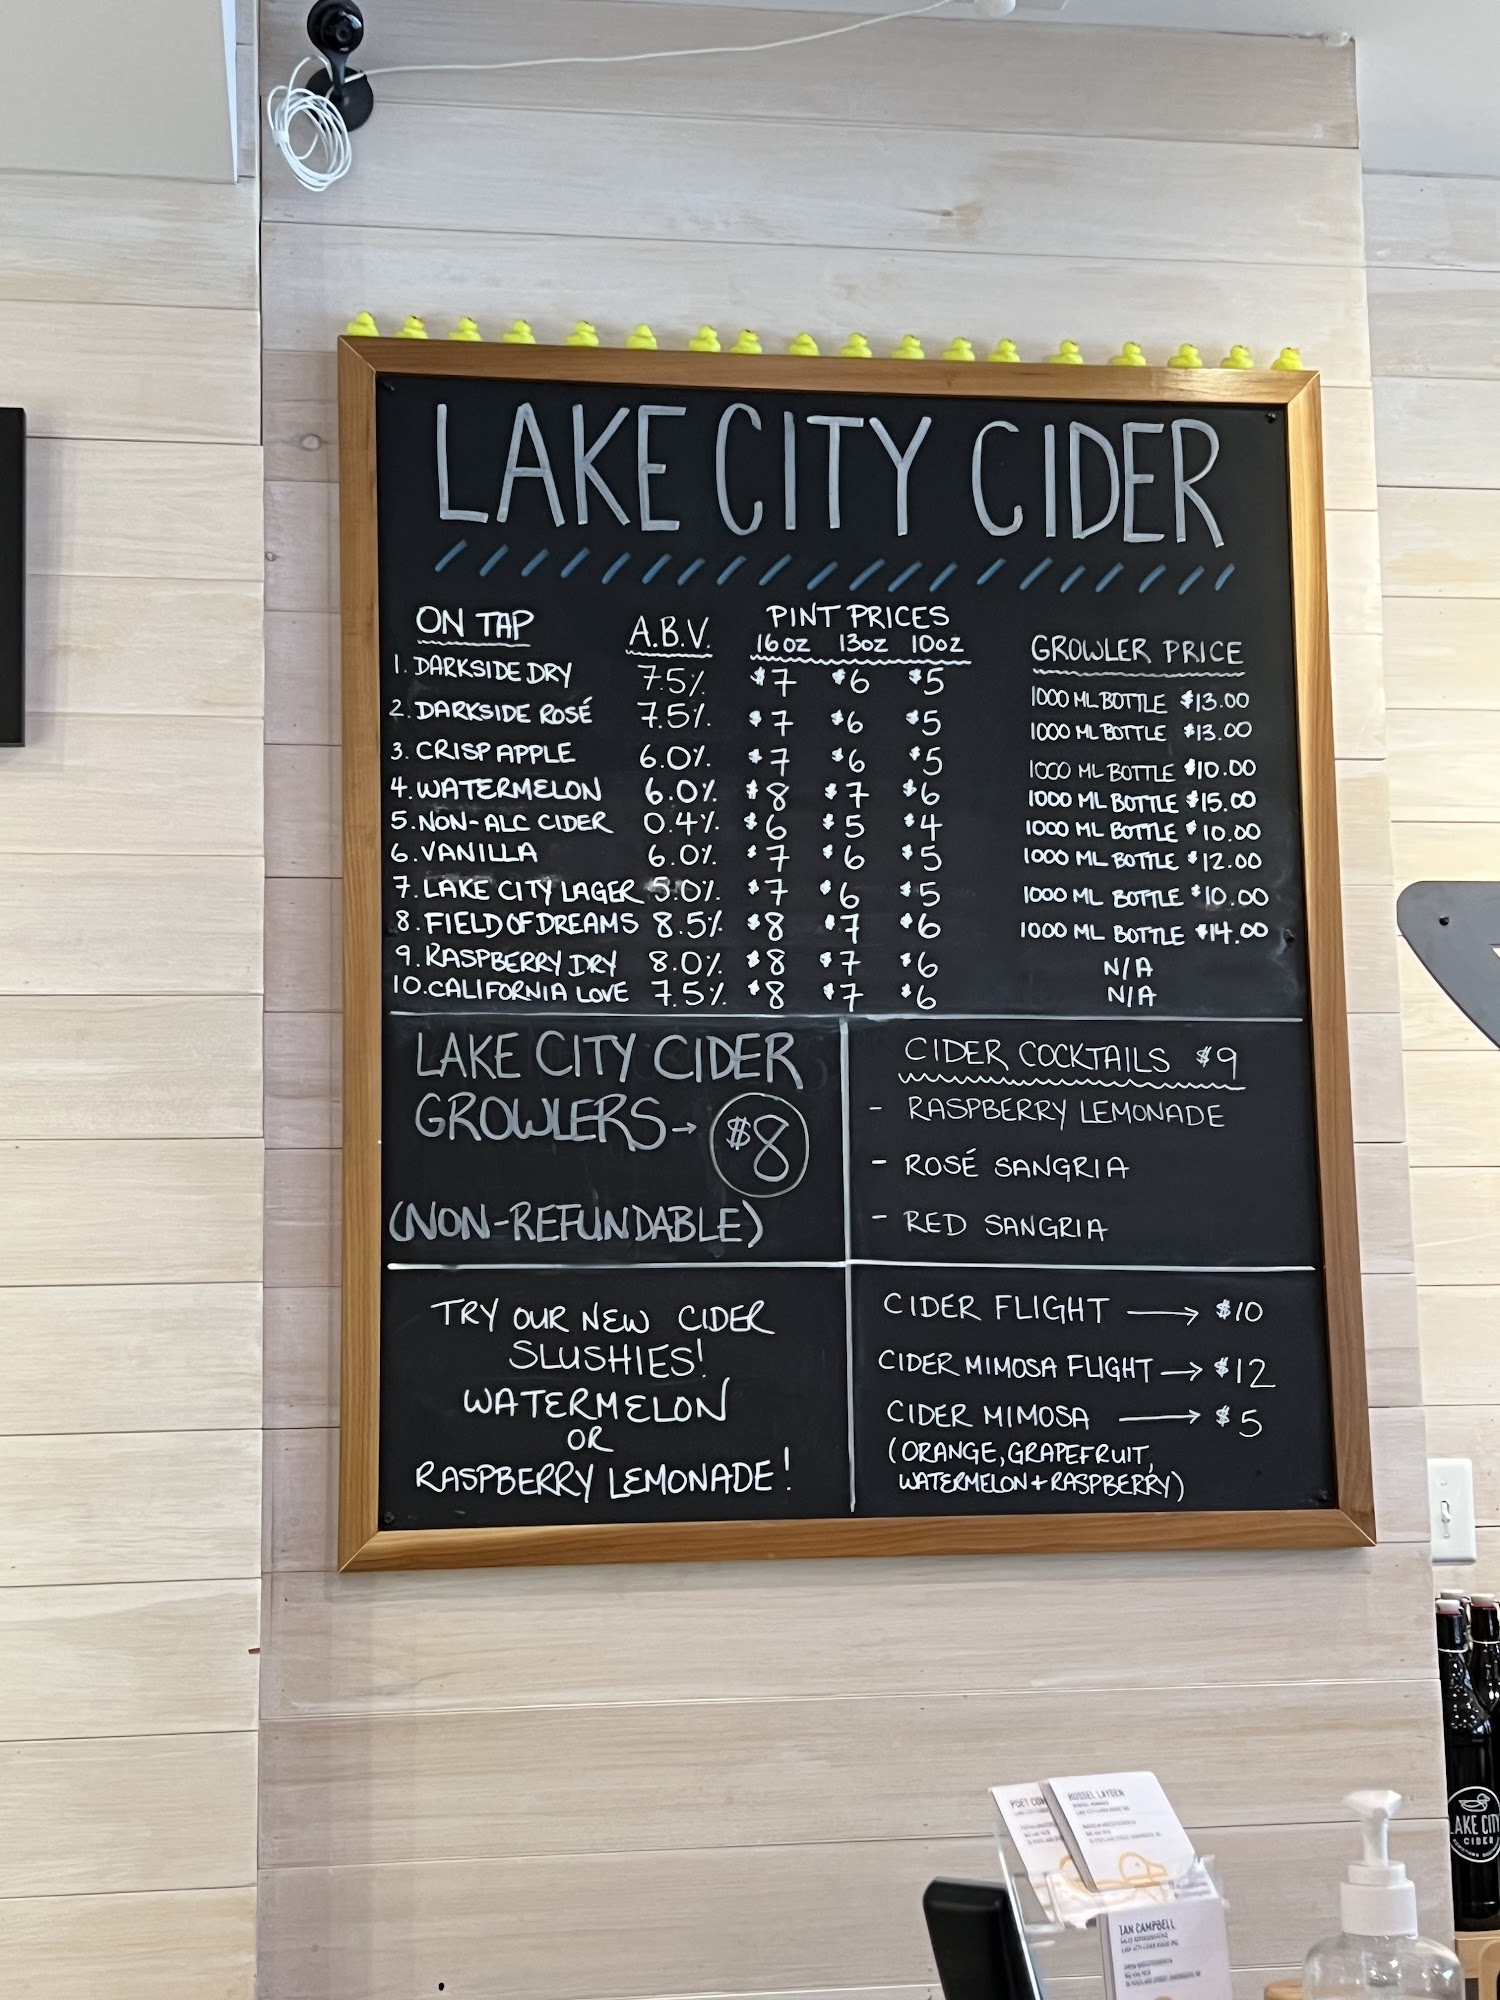 LAKE CITY CIDER
ON TAP A.B.V. PINT PRICES GROWLER PRICE
16oz 13oz 10oz
1. DARKSIDE DRY 7.5% $7 $6 $5 1000 ML BOTTLE $13.00
2. DARKSIDE ROSÉ 7.5% $7 $6 $5 1000 ML BOTTLE $13.00
3. CRISP APPLE 6.0% $7 $6 $5 1000 ML BOTTLE $10.00
4. WATERMELON 6.0% $8 $7 $6 1000 ML BOTTLE $15.00
5. NON-ALC CIDER 0.4% $6 $5 $4 1000 ML BOTTLE $10.00
6. VANILLA 6.0% $7 $6 $5 1000 ML BOTTLE $12.00
7. LAKE CITY LAGER 5.0% $7 $6 $5 1000 ML BOTTLE $10.00
8. FIELD OF DREAMS 8.5% $8 $7 $6 1000 ML BOTTLE $14.00
9. RASPBERRY DRY 8.0% $8 $7 $6 N/A
10. CALIFORNIA LOVE 7.5% $8 $7 $6 N/A
LAKE CITY CIDER
GROWLERS → $8
(NON-REFUNDABLE)
CIDER COCKTAILS $9
- RASPBERRY LEMONADE
- ROSÉ SANGRIA
- RED SANGRIA
TRY OUR NEW CIDER
SLUSHIES!
WATERMELON
OR
RASPBERRY LEMONADE!
CIDER FLIGHT → $10
CIDER MIMOSA FLIGHT → $12
CIDER MIMOSA → $5
(ORANGE, GRAPEFRUIT,
WATERMELON + RASPBERRY)
RUSSEL LAYDEN
IAN CAMPBELL
LAKE CITY
CIDER